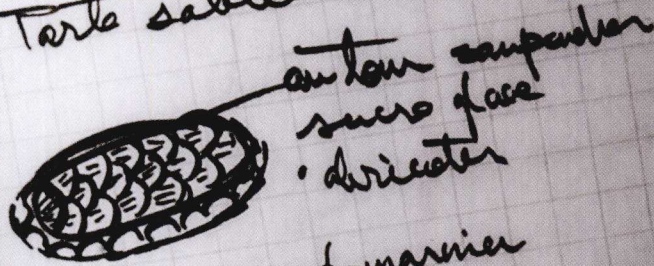 Tarte sablé
autour saupoudrer
sucre glace
• abricoter
marnier